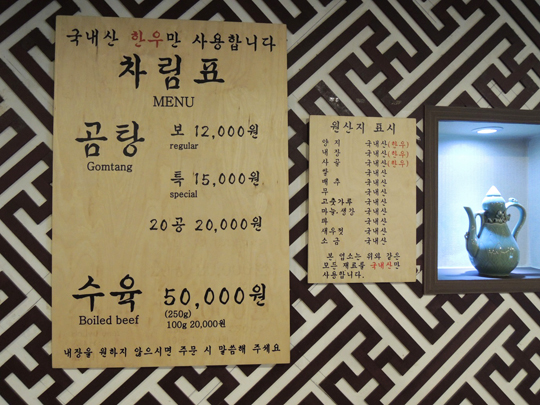 국내산 한우만 사용합니다
차림표
MENU
곰탕
Gomtang
보 12,000원
regular
특 15,000원
special
20공 20,000원
수육 50,000원
Boiled beef
(250g)
100g 20,000원
내장을 원하지 않으시면 주문 시 말씀해 주세요
원산지 표시
양지 국내산(한우)
내장 국내산(한우)
사골 국내산(한우)
쌀 국내산
배추 국내산
무 국내산
고춧가루 국내산
마늘,생강 국내산
파 국내산
새우젓 국내산
소금 국내산
본 업소는 위와 같은
모든 재료를 국내산만
사용합니다.